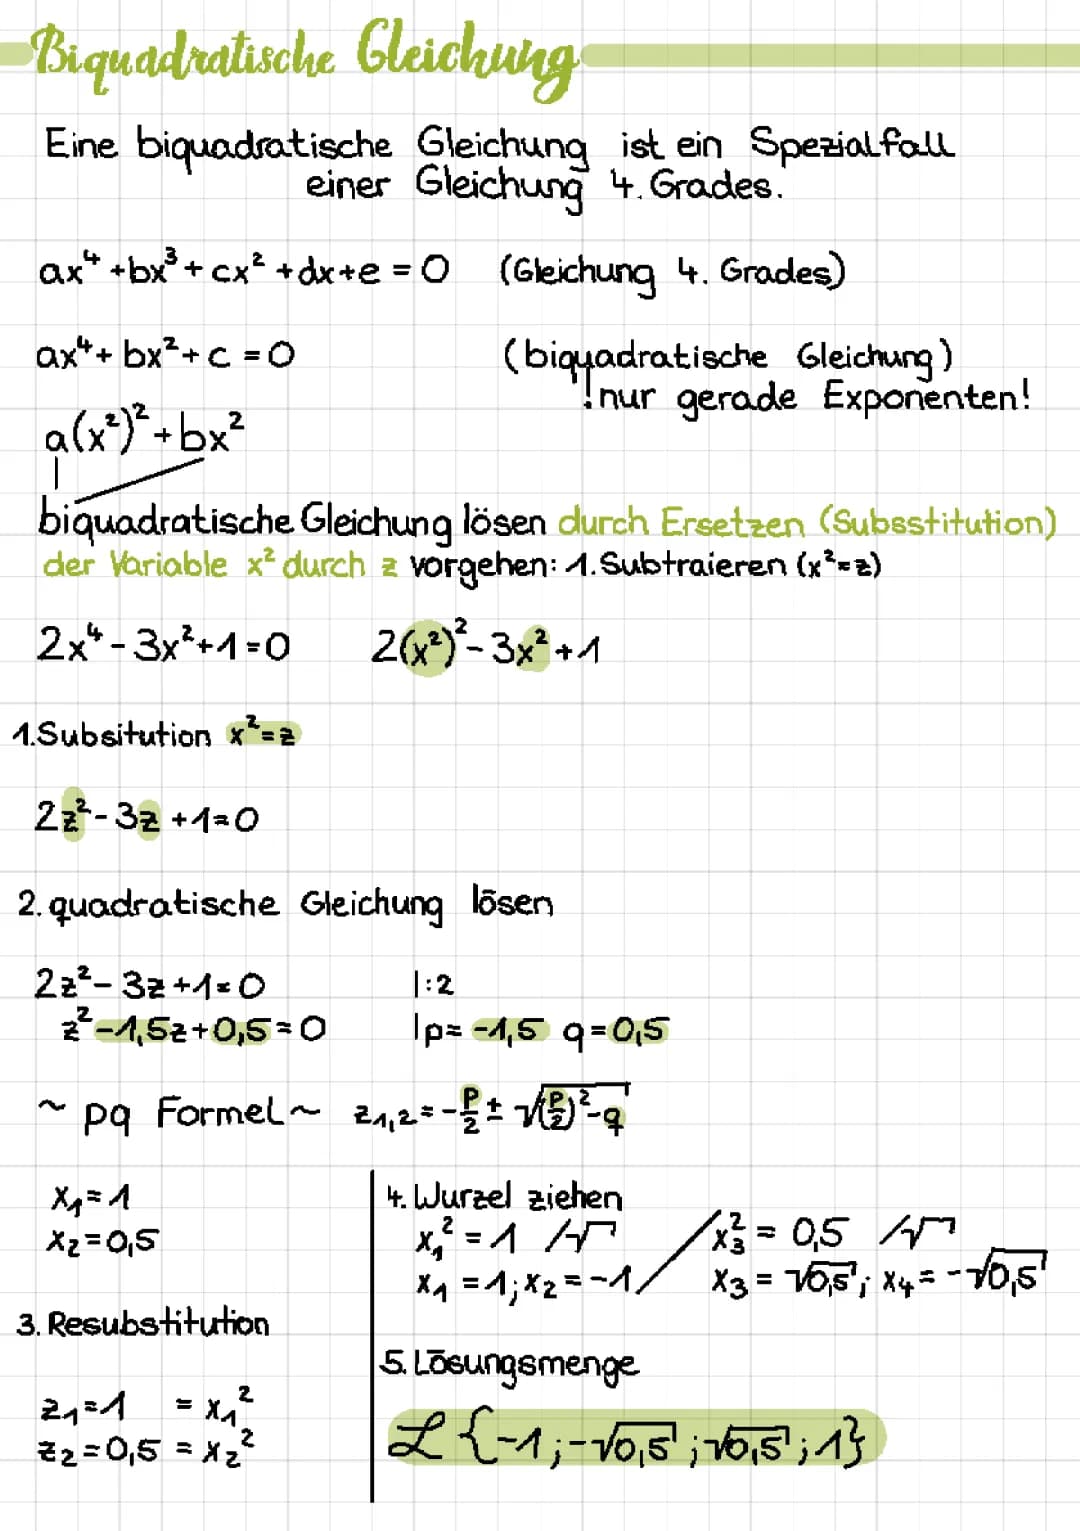 Biquadratische Gleichung
Eine biquadratische Gleichung ist ein Spezialfall
einer Gleichung 4. Grades.
ax⁴ + bx³ + cx² + dx + e = 0 (Gleichung 4. Grades)
ax⁴ + bx² + c = 0 (biquadratische Gleichung)
!nur gerade Exponenten!
a(x²)² + bx²
biquadratische Gleichung lösen durch Ersetzen (Subsstitution)
der Variable x² durch z vorgehen: 1. Subtraieren (x²=z)
2x⁴ - 3x² + 1 = 0 2(x²)² - 3x² + 1
1. Subsitution x² = z
2z² - 3z + 1 = 0
2. quadratische Gleichung lösen
2z² - 3z + 1 = 0 |:2
z² - 1,5z + 0,5 = 0 |p = -1,5 q = 0,5
~ pq Formel ~ z₁,₂ = -p/2 ± √((p/2)² - q)
x₁ = 1
x₂ = 0,5
3. Resubstitution
z₁ = 1 = x₁²
z₂ = 0,5 = x₂²
4. Wurzel ziehen
x₁² = 1 /√ / x₃² = 0,5 /√
x₁ = 1; x₂ = -1 / x₃ = √0,5; x₄ = -√0,5
5. Lösungsmenge
L {-1; -√0,5; √0,5; 1}